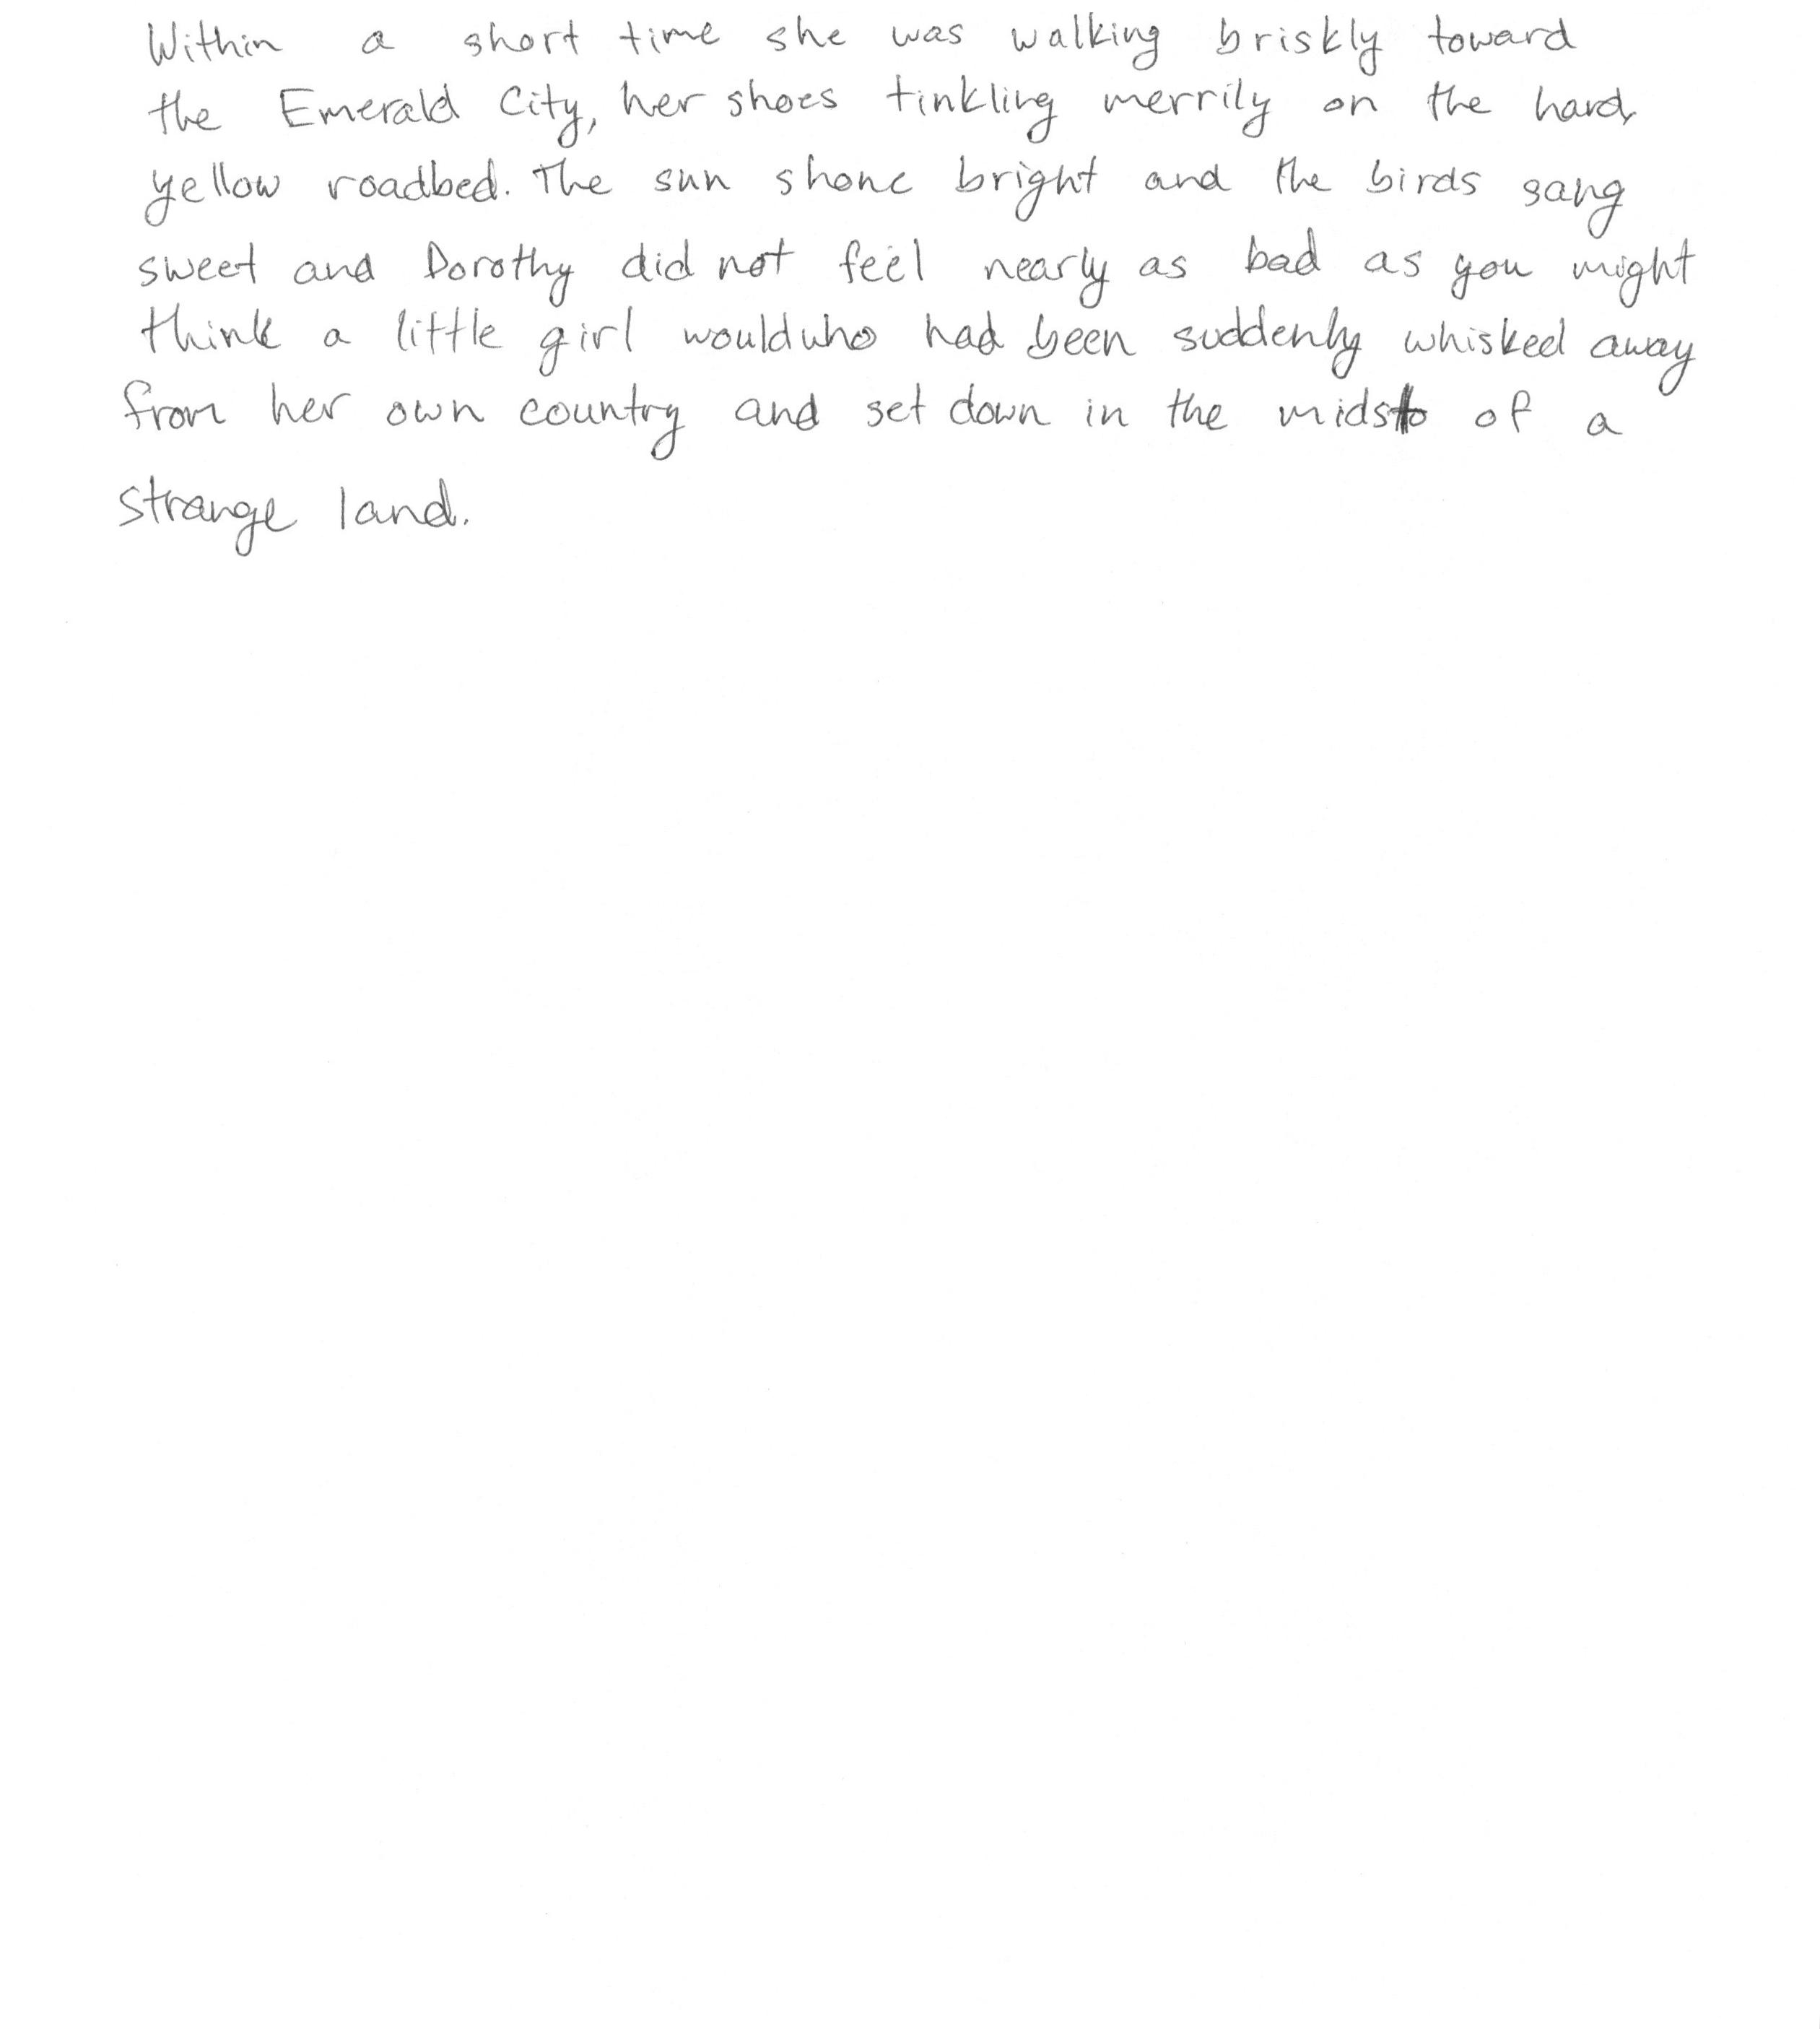 Within a short time she was walking briskly toward
the Emerald City, her shoes tinkling merrily on the hard,
yellow roadbed. The sun shone bright and the birds sang
sweet and Dorothy did not feel nearly as bad as you might
think a little girl would who had been suddenly whisked away
from her own country and set down in the midst of a
strange land.